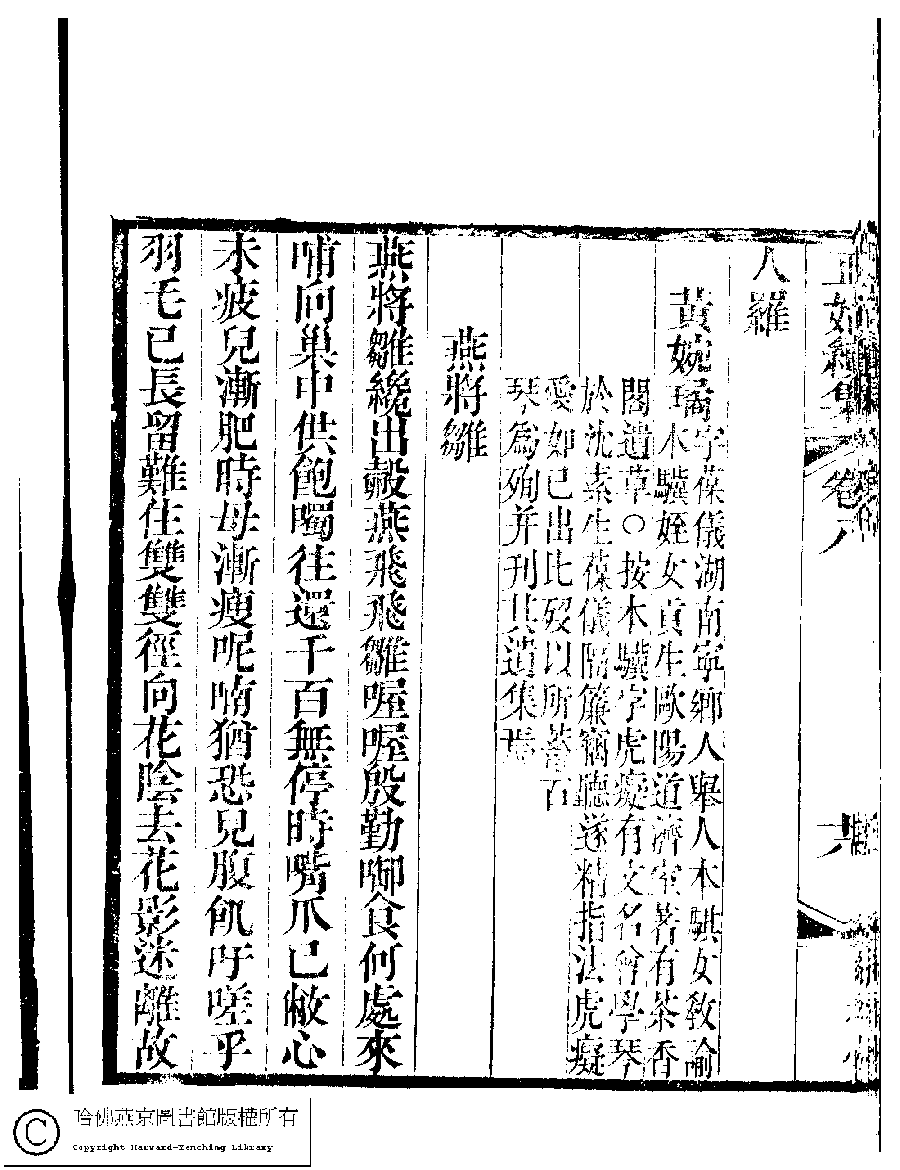 正始續集 卷八
六
人羅
黃婉璚字葆儀湖南寧鄉人舉人本騏女教諭
本驥姪女貢生歐陽道濟室著有茶香
閣遺草○按本驥字虎癡有文名曾學琴
於沈素生葆儀隔簾竊聽遂精指法虎癡
愛如已出比歿以所蓄古
琴為殉并刊其遺集焉
燕將雛
燕將雛纔出㲉燕飛飛雛喔喔殷勤啣食何處來
哺向巢中供飽噣往還千百無停時嘴爪已敝心
未疲兒漸肥時母漸瘦呢喃猶恐兒腹飢吁嗟乎
羽毛已長留難住雙雙徑向花陰去花影迷離故
哈佛燕京圖書館版權所有
Copyright Harvard-Yenching Library